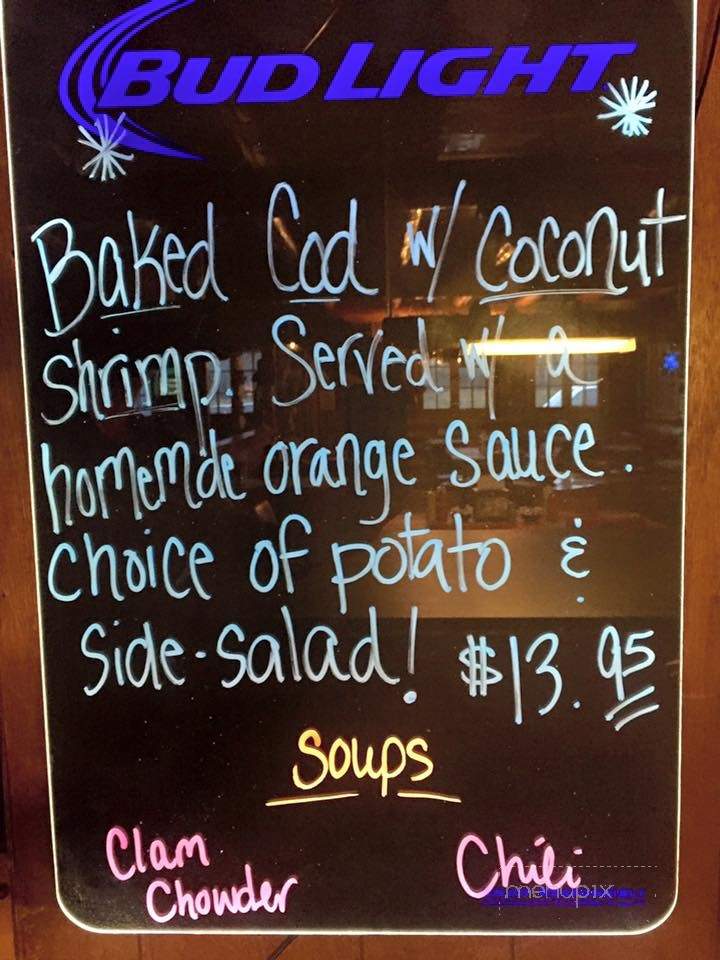 BUD LIGHT
Baked Cod w/ Coconut
shrimp. Served w/ a
homemde orange sauce.
choice of potato &
side-salad! $13.95
Soups
Clam
Chowder
Chili
menupix